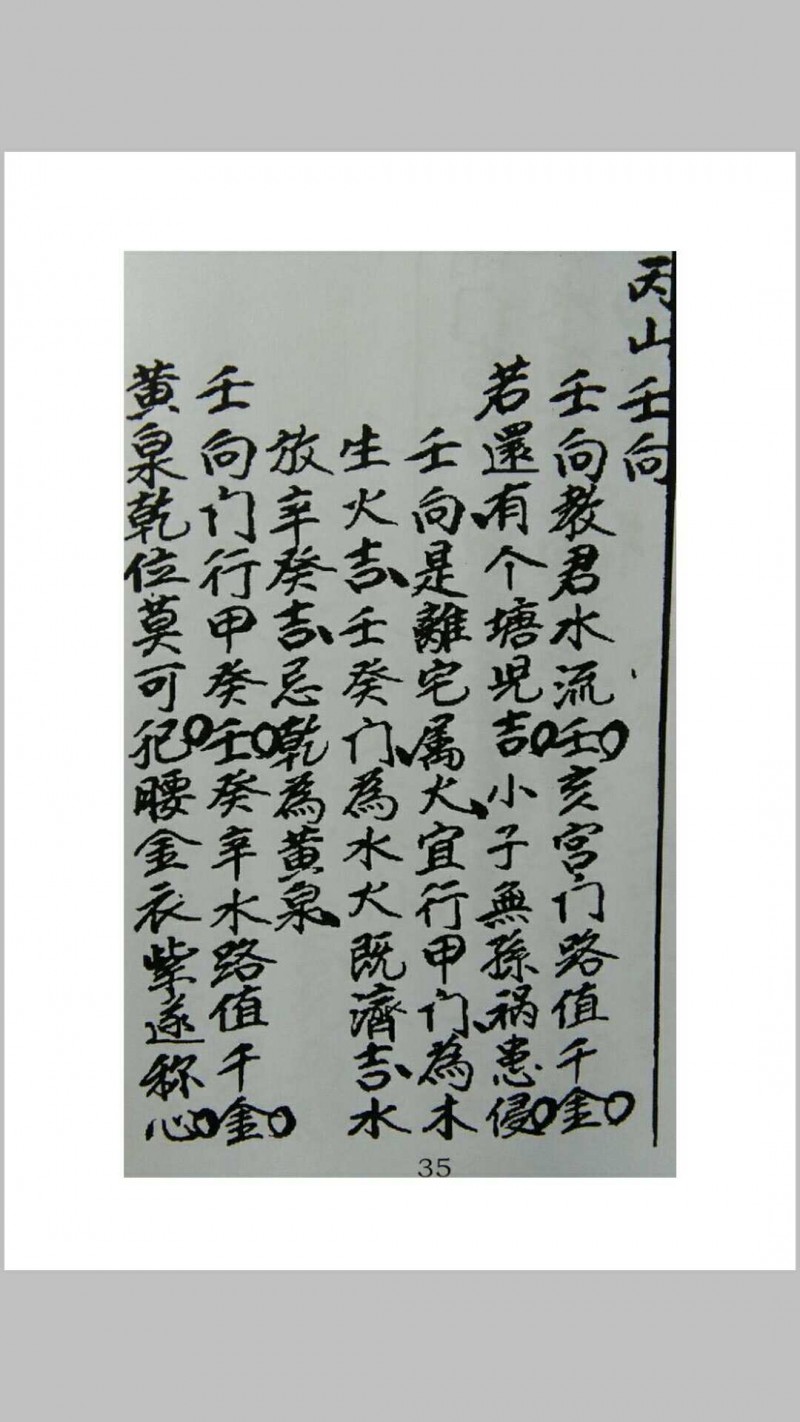 丙山壬向
壬向教君水流壬。亥宮门路值千金。
若還有个塘児吉。小子無孫禍患侵。
壬向是離宅属火、宜行甲门、為木
生火吉、壬癸门、為水火既濟吉、水
放辛癸吉、忌乾為黄泉、
壬向门行甲癸。壬癸辛水路值千金。
黄泉乾位莫可犯。腰金衣紫遂称心。
35